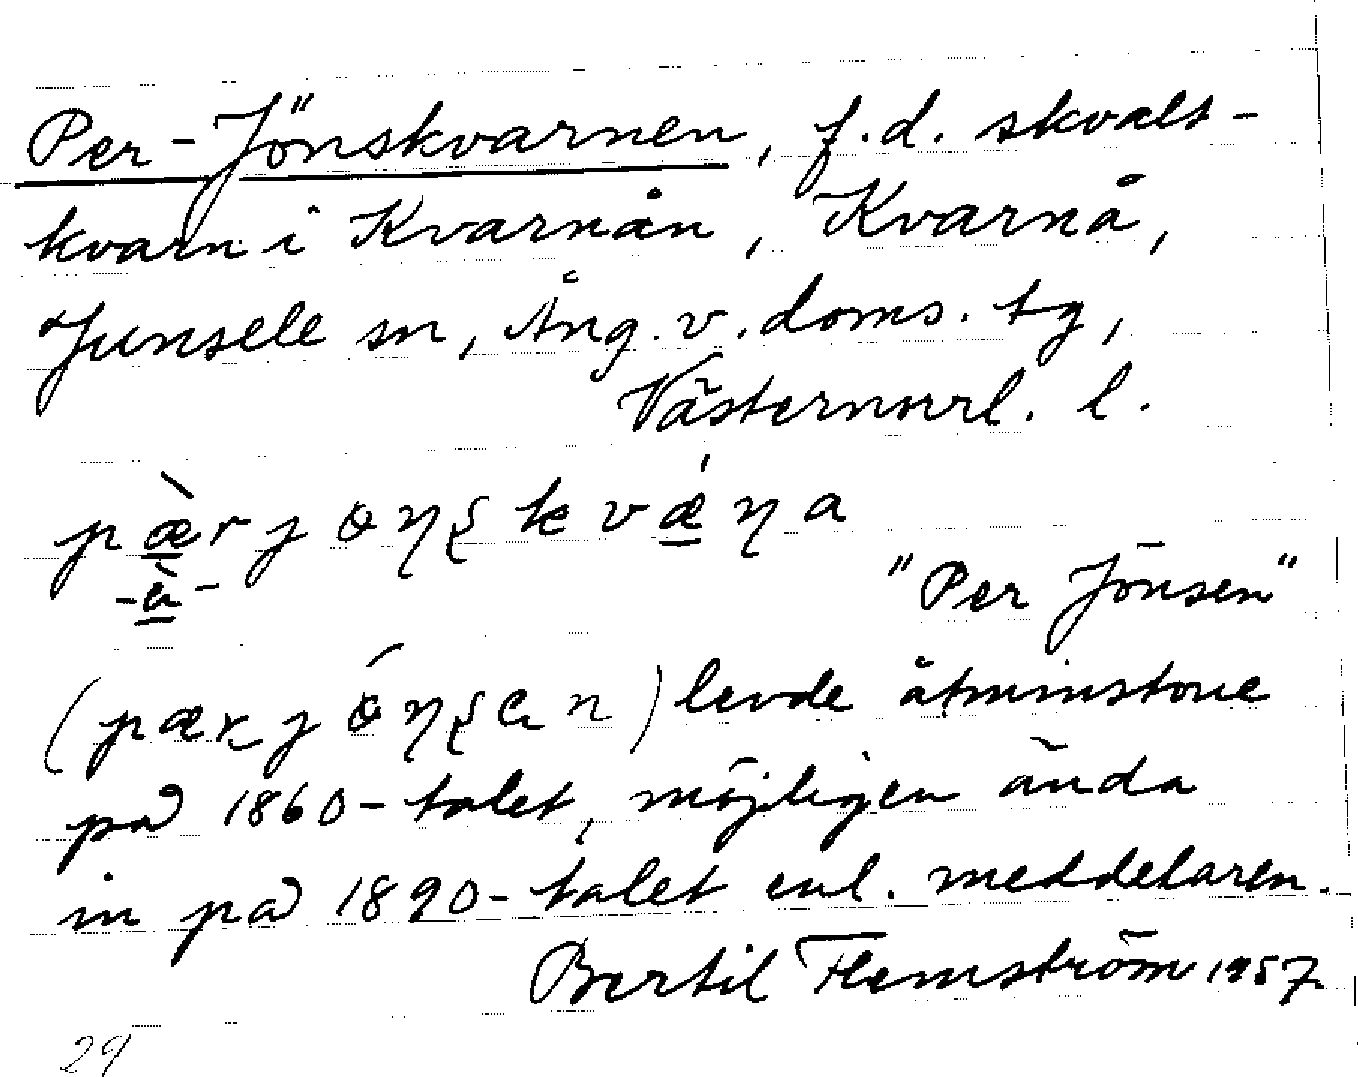 Per-Jönskvarnen, f.d. skvalt-
kvarn i Kvarnån, Kvarnå,
Junsele sn, Ång. v. doms. tg,
Västernorrl. l.
pæ̀rjɵηʂkvǽηa
-è-
"Per Jönsen"
(pærjɵ́ηʂen) levde åtminstone
på 1860-talet, möjligen ända
in på 1890-talet enl. meddelaren.
Bertil Flemström 1957
29